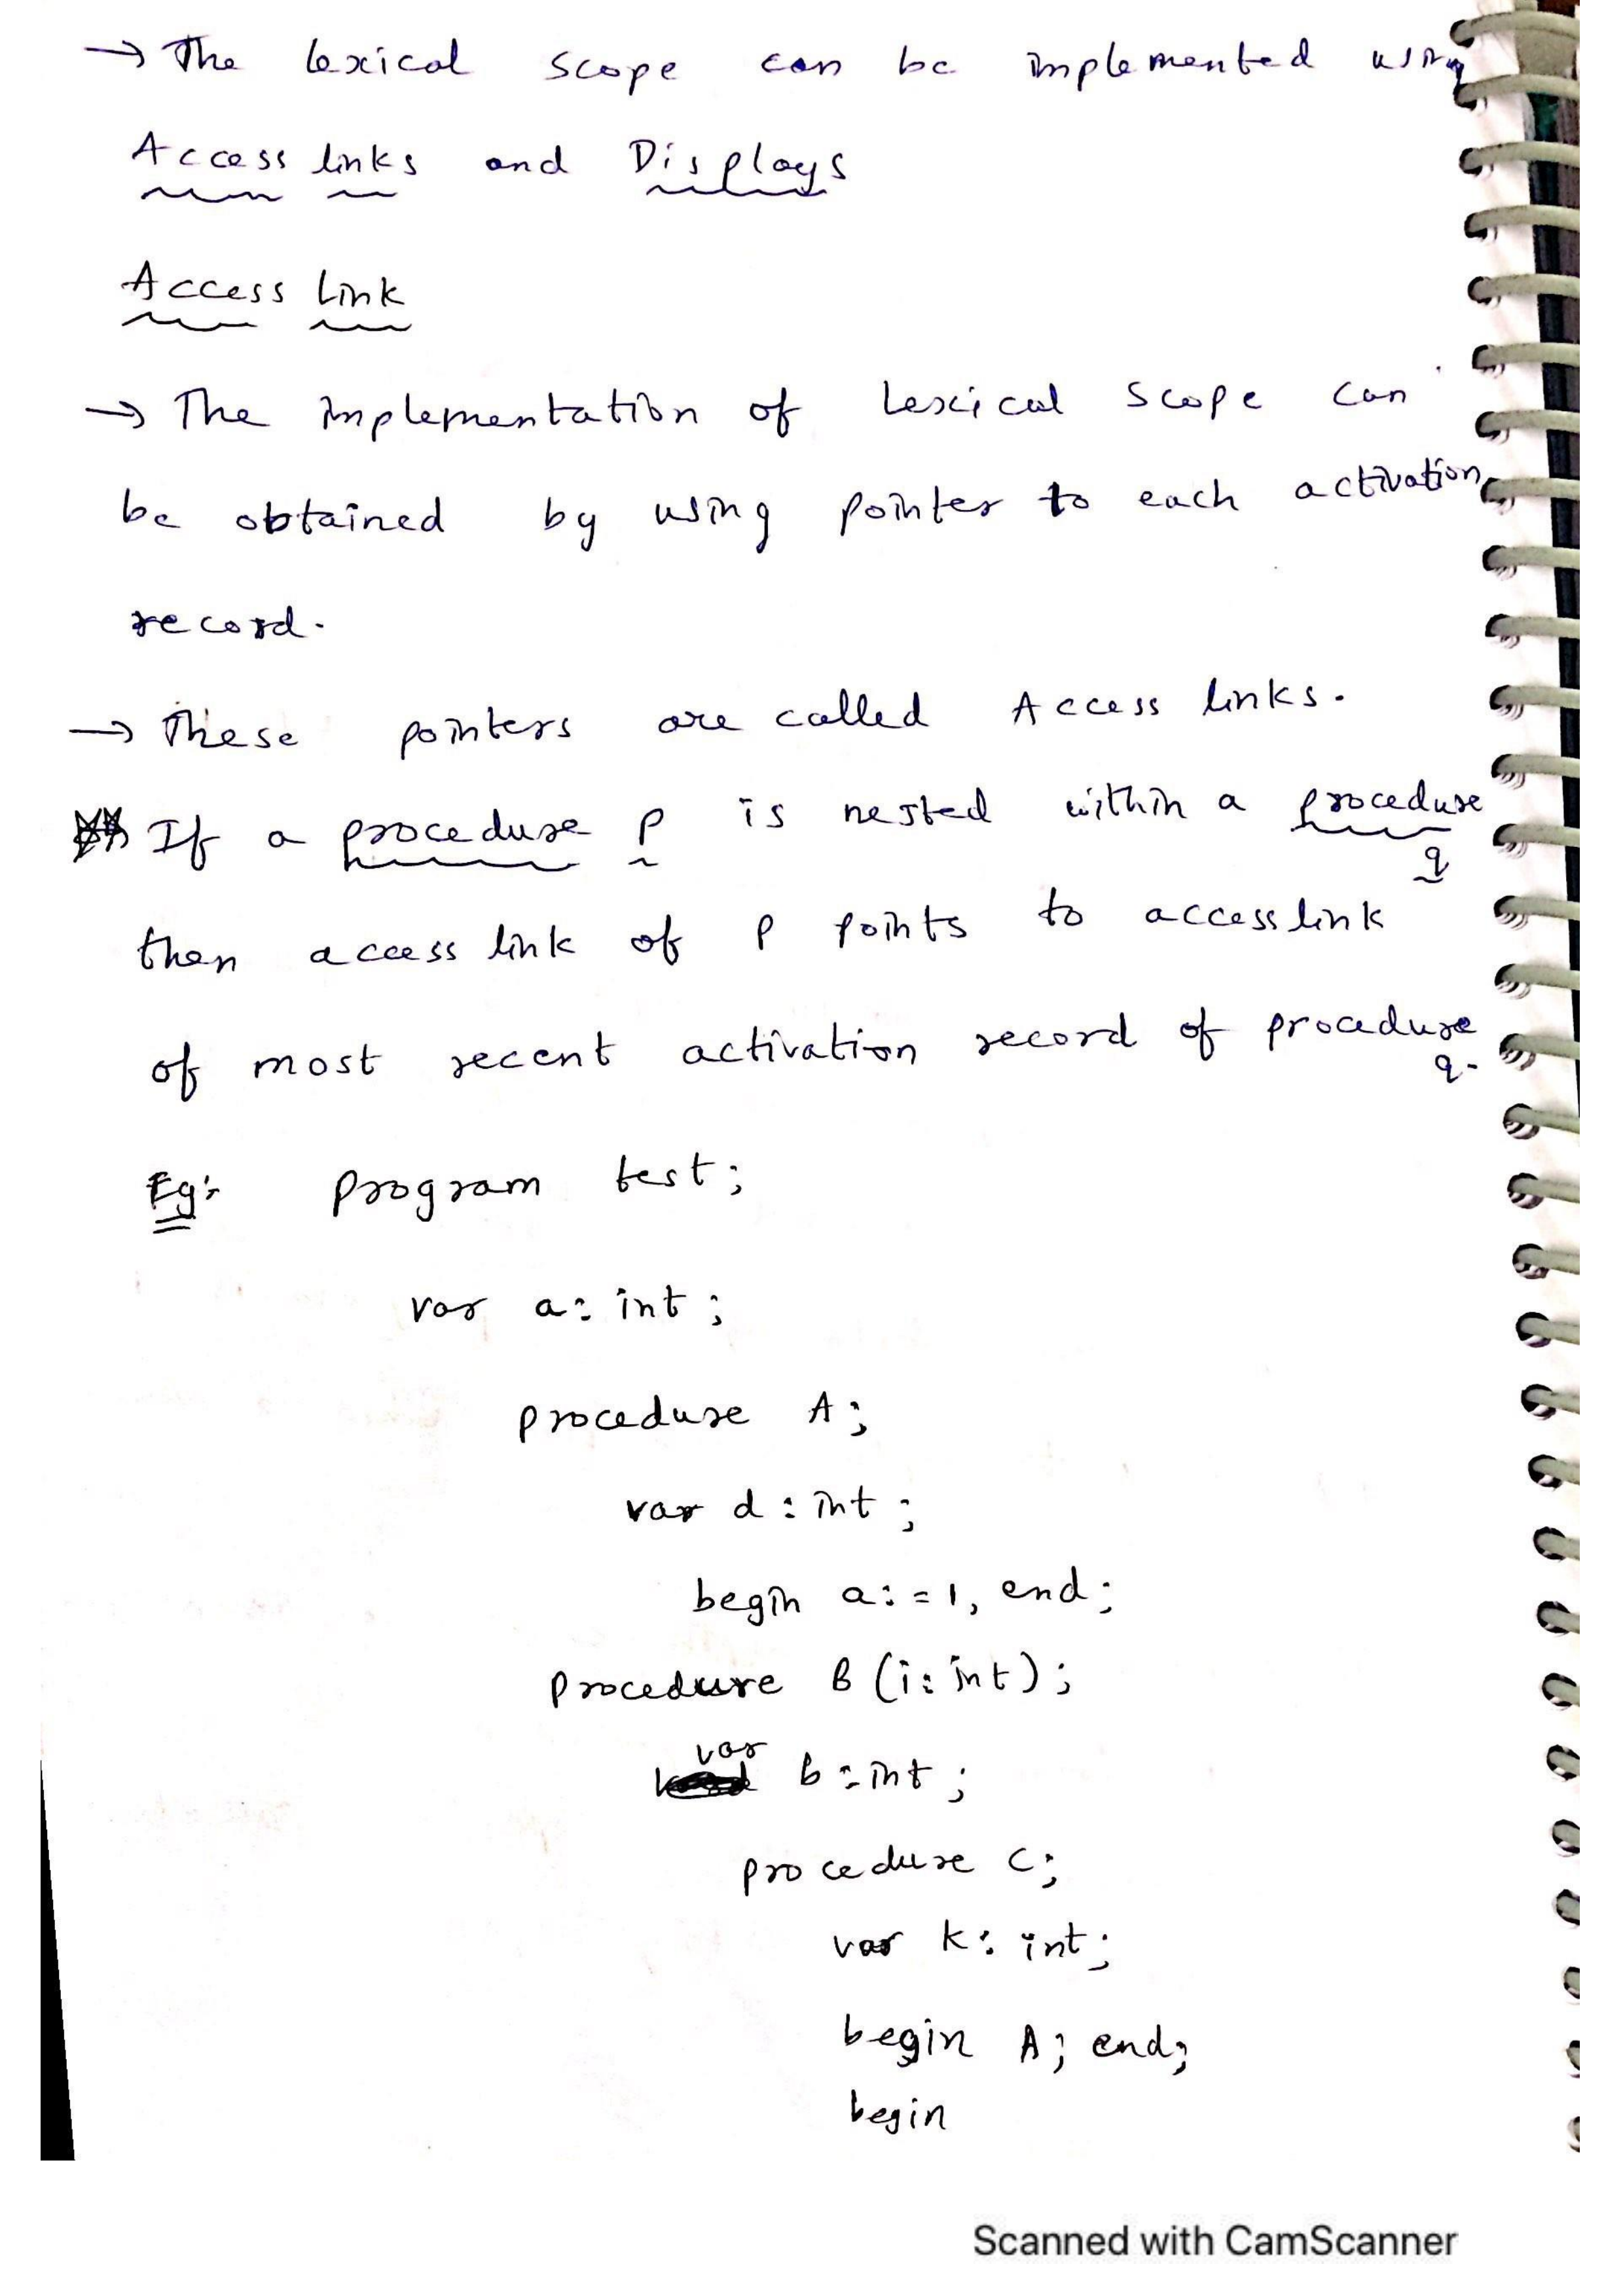 → The lexical scope can be implemented using
Access links and Displays
Access Link
→ The implementation of Lexical scope can
be obtained by using pointer to each activation
record.
→ These pointers are called Access links.
If a procedure P is nested within a procedure
q
then access link of P points to access link
of most recent activation record of procedure
q.
Eg:- Program test;
var a: int;
procedure A;
var d: int;
begin a:=1, end;
Procedure B(i: int);
var b: int;
procedure C;
var k: int;
begin A; end;
begin
Scanned with CamScanner